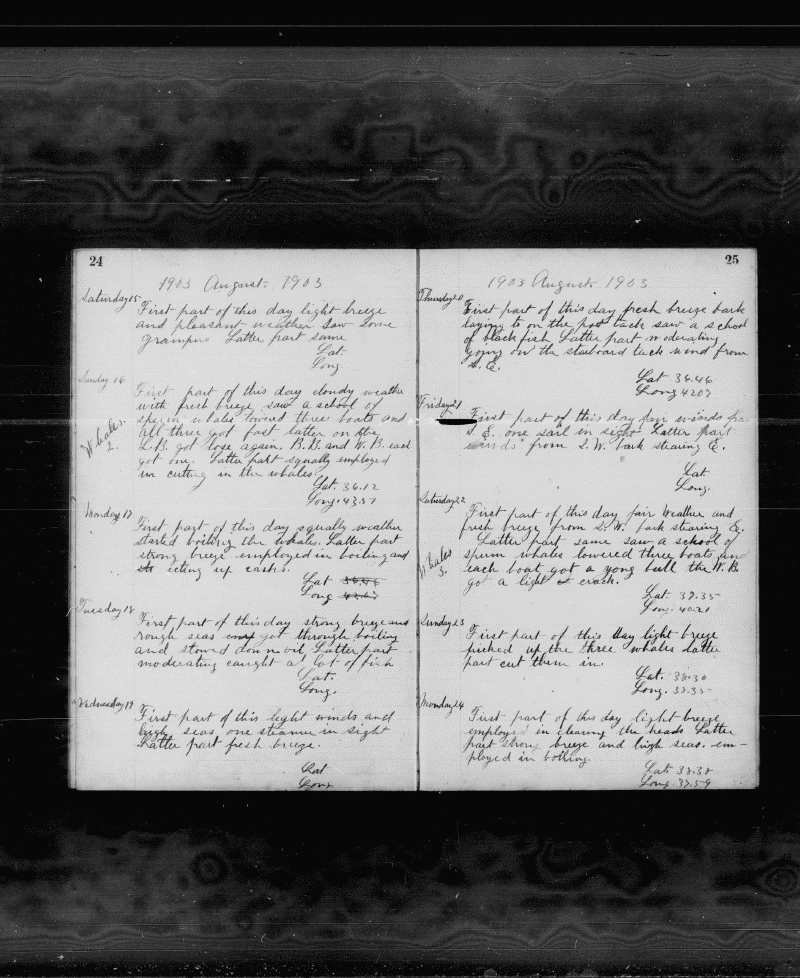 24
1903 August. 1903
Saturday 15
First part of this day light breeze
and pleasant weather saw some
grampus Latter part same
Lat.
Long.
Sunday 16
First part of this day clondy weather
with fresh breeze saw a school of
sperm whales lowered three boats and
all three got fast latter on the
L.B. got lose again. B.B. and W.B. each
got one. Latter part squally employed
in cutting in the whales.
Whales.
2.
Lat. 36.12
Long. 43.57
Monday 17
First part of this day squally weather
started boiling the whales. Latter part
strong breeze employed in boiling and
seting up casks.
Lat 36.46
Long 42.07
Tuesday 18
First part of this day strong breeze and
rough seas got through boiling
and stowd down oil Latter part
moderating caught a lot of fish
Lat.
Long.
Wednesday 19
First part of this light winds and
high seas one steamer in sight
Latter part fresh breeze.
Lat
Long
25
1903 August. 1903
Thursday 20
First part of this day fresh breeze bark
laying to on the port tack saw a school
of blackfish Latter part moderating
going on the starboard tack wind from
S.E.
Lat 36.46
Long 4207
Friday 21
First part of this day fair winds
S.E. one sail in sight Latter part
winds from S.W. bark stearing E.
Lat
Long.
Saturday 22
First part of this day fair weather and
fresh breeze from S.W. bark stearing E.
Latter part same saw a school of
sperm whales lowered three boats and
each boat got a yong bull the W.B
got a light crack.
Whales
3.
Lat. 37.35
Long. 40.21
Sunday 23
First part of this day light breeze
picked up the three whales latter
part cut them in.
Lat. 38.30
Long. 39.35
Monday 24
First part of this day light breeze
employed in clearing the heads Latter
part strong breeze and high seas. em-
ployed in boiling.
Lat. 38.38
Long. 39.59